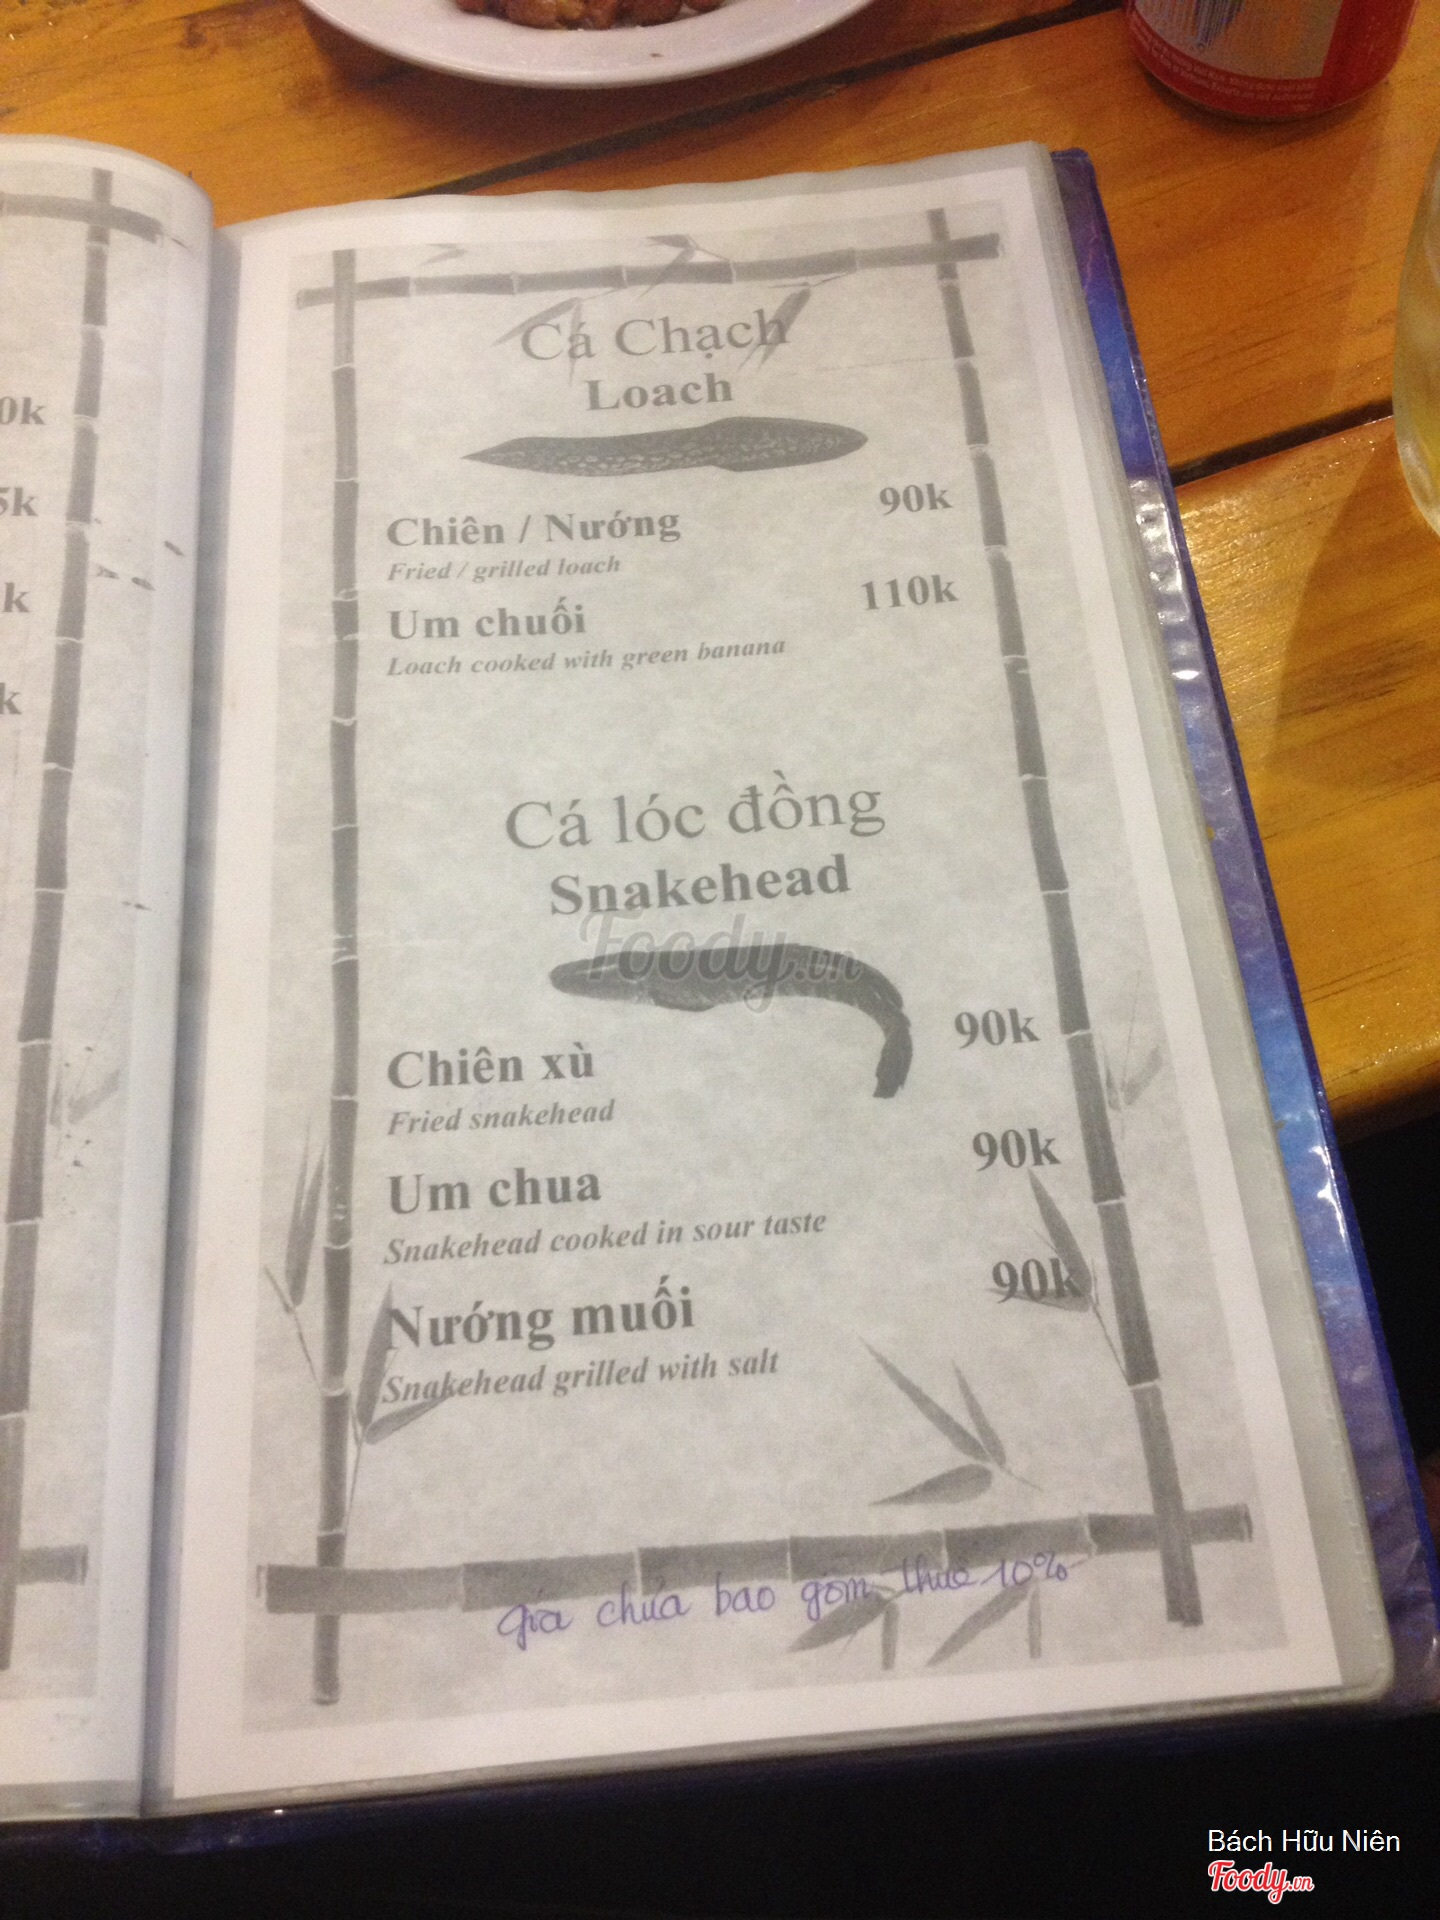 0k
5k
k
k
Cá Chạch
Loach
Chiên / Nướng 90k
Fried / grilled loach
Um chuối 110k
Loach cooked with green banana
Cá lóc đồng
Snakehead
Foody.vn
Chiên xù 90k
Fried snakehead
Um chua 90k
Snakehead cooked in sour taste
Nướng muối 90k
Snakehead grilled with salt
giá chưa bao gồm thuế 10%
Bách Hữu Niên
Foody.vn